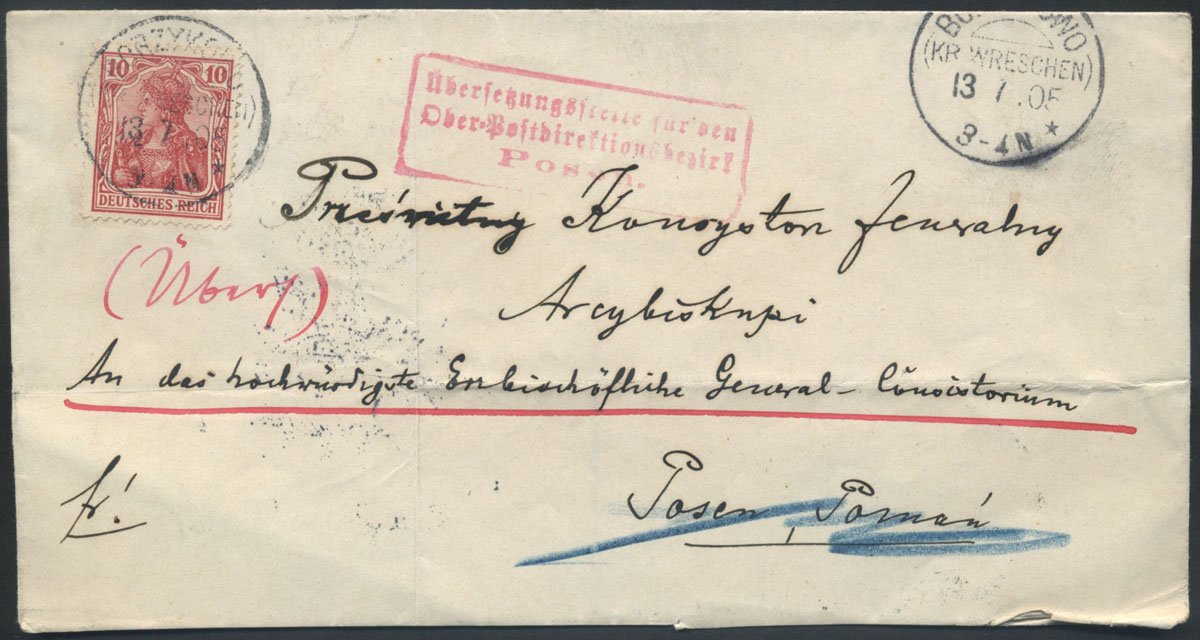 10 10
DEUTSCHES REICH
13 7 05
Übersetzungsstelle für den
Ober-Postdirektionsbezirk
Posen.
(KR. WRESCHEN)
13 7 .05
3-4N *
Prześwietny Konsystorz Jeneralny
(Übers)
Arcybiskupi
An das hochwürdigste Erzbischöfliche General-Consistorium
fr!
Posen, Poznań